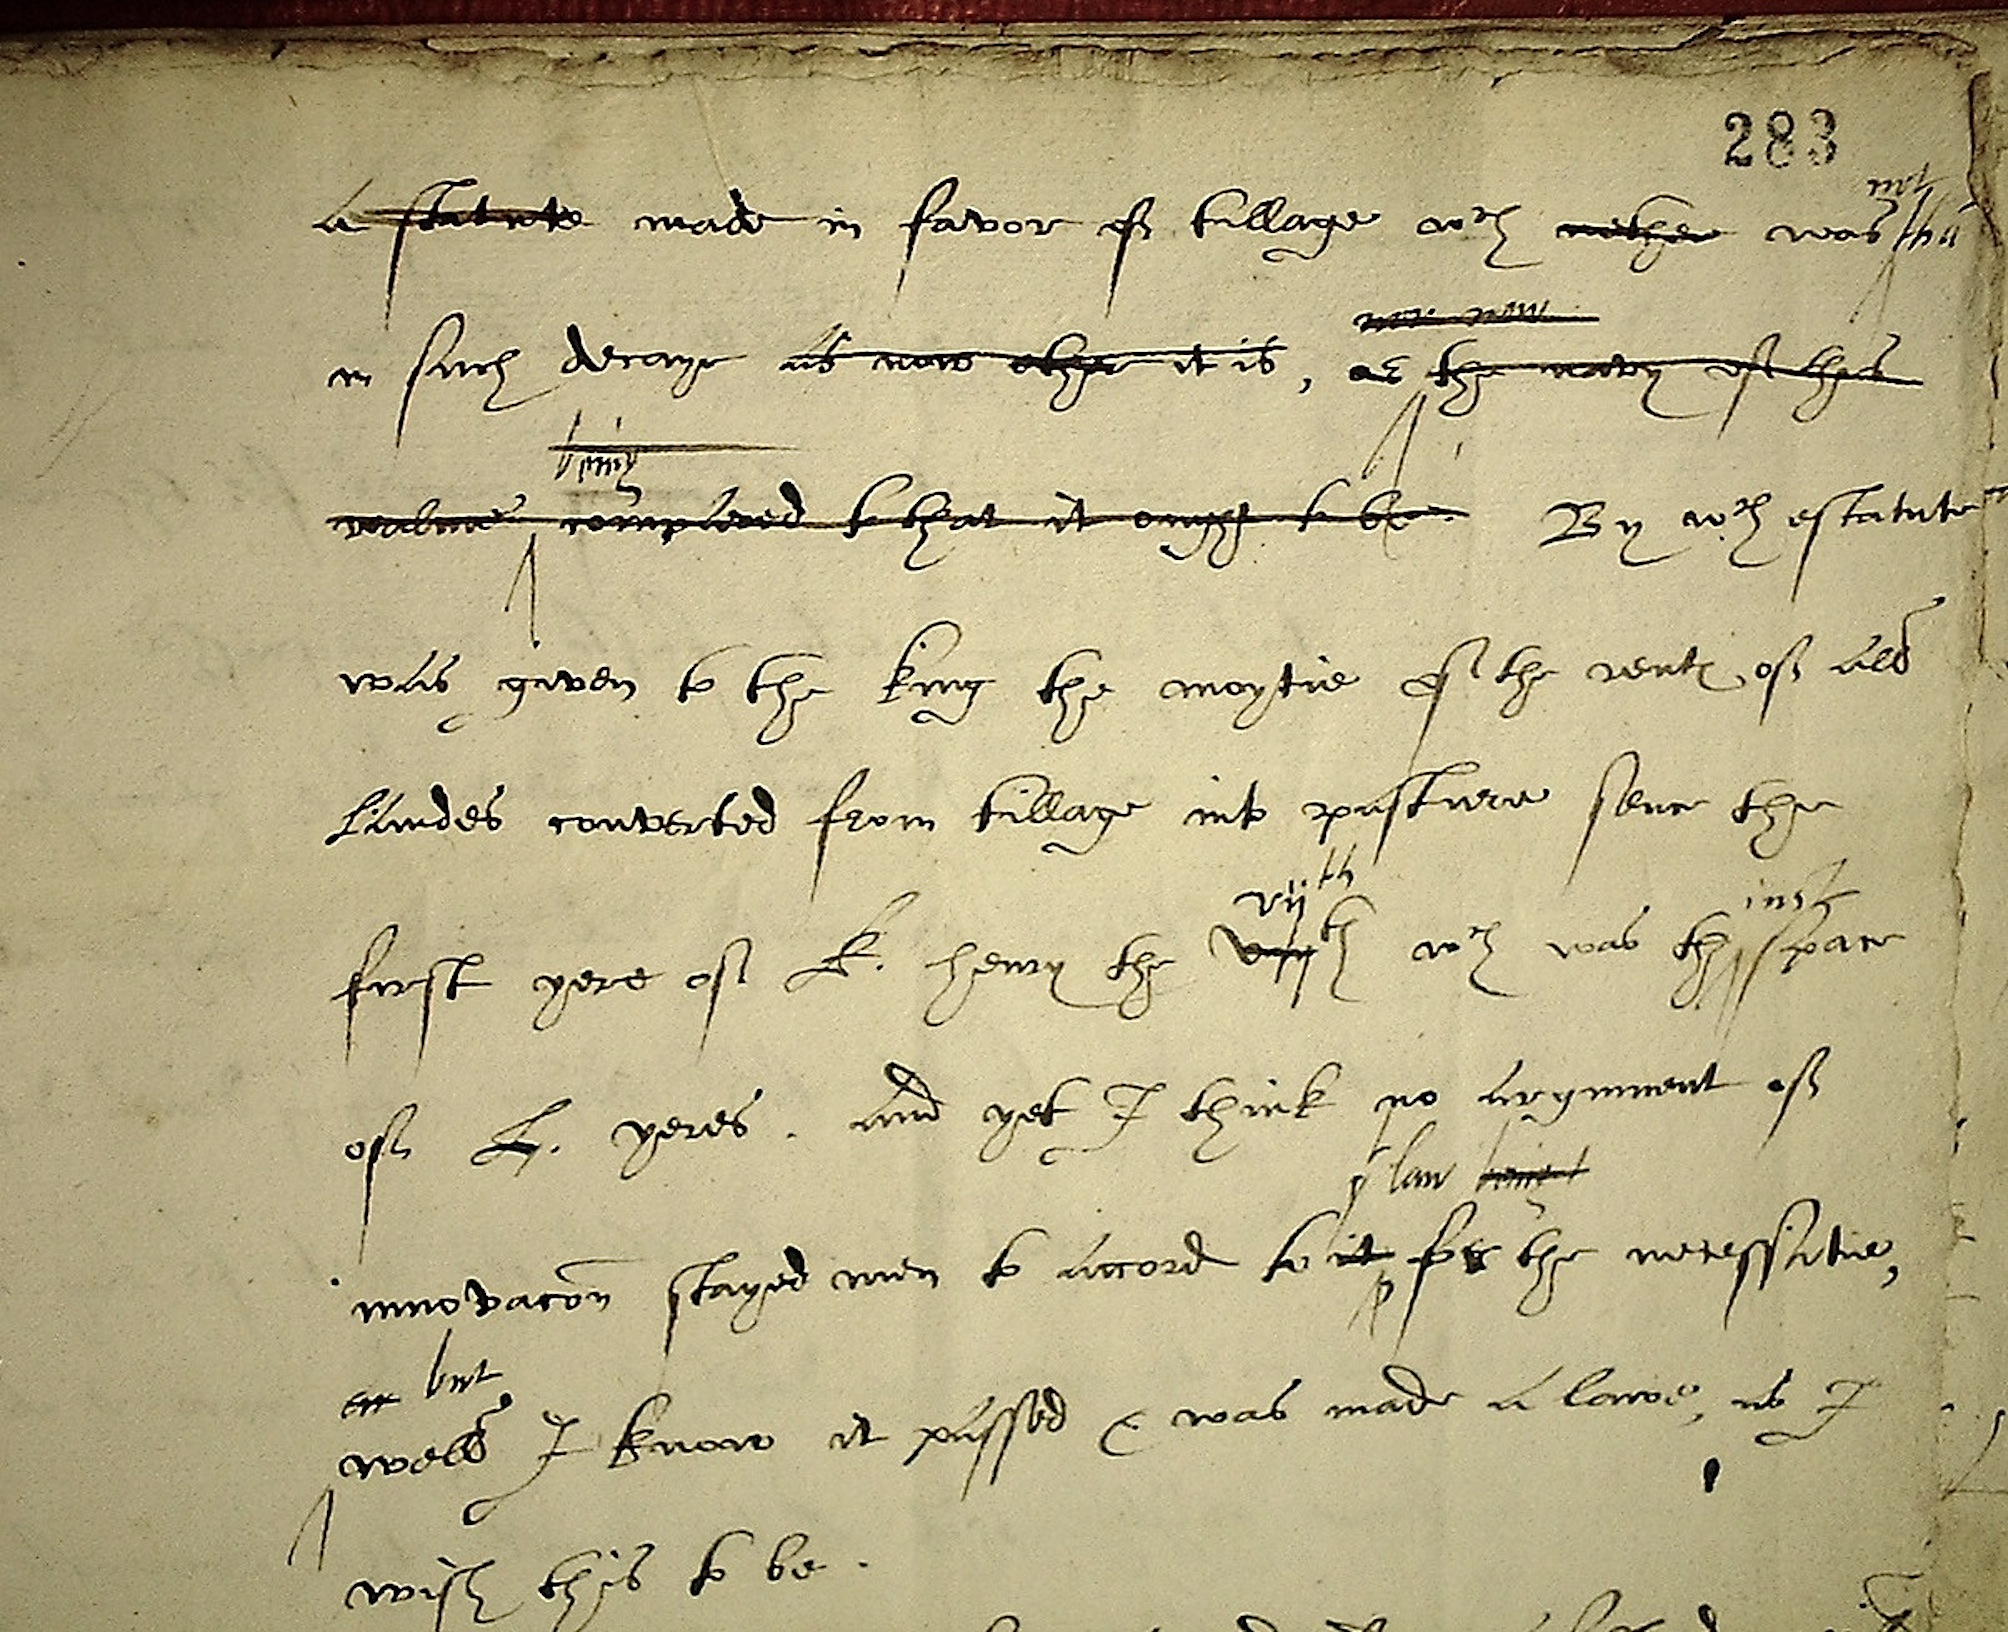 283
not
a statute made in favor of tillage wch nether was then
nor now
in such decaye as now the it is, as the navy of this
being
realme compared to that it ought to be. By wch estatute
was given to the King the moytie of the rents of all
Landes converted from tillage into pasture sence the
vijth
first yere of K. henry the viijth wch was the space
just
of L. yeres. and yet I think no argument of
ye law being
innovacon stayed men to accord to it for the necessitie,
but
well I know it passed & was made a lawe, as I
wish this to be.